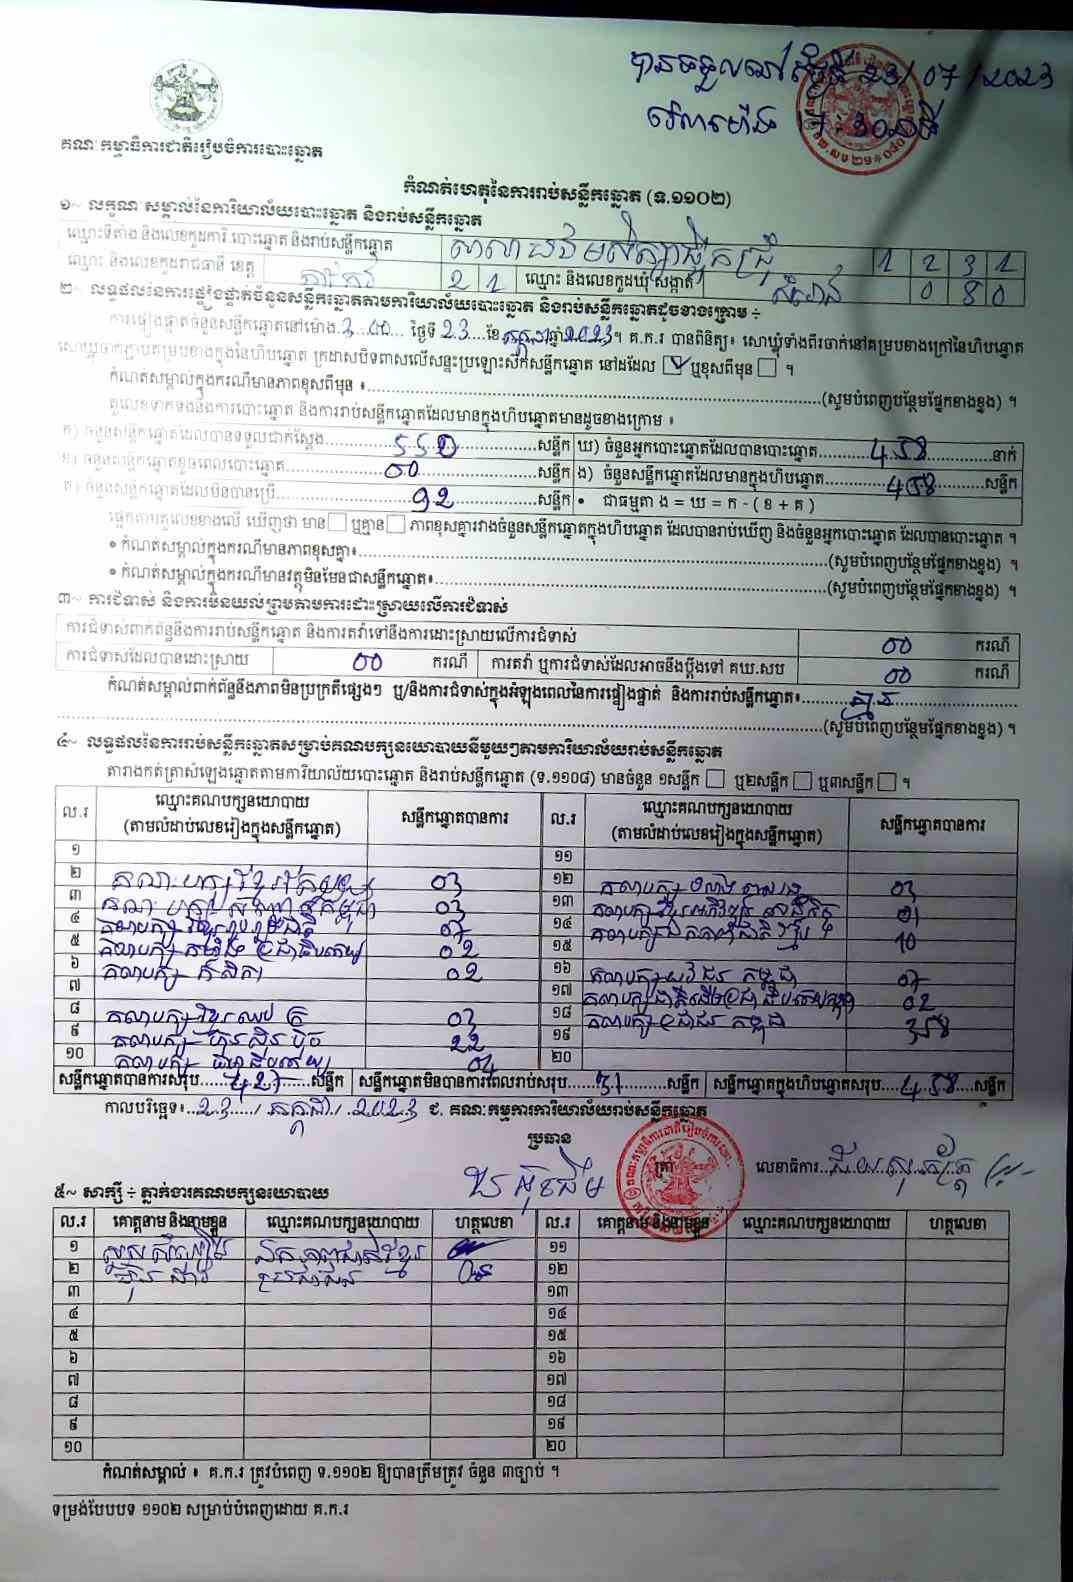 បានទទួលនៅថ្ងៃទី 23/07/2023
វេលាម៉ោង 17:30នាទី
គណៈកម្មាធិការជាតិរៀបចំការបោះឆ្នោត
កំណត់ហេតុនៃការរាប់សន្លឹកឆ្នោត (ទ.១១០២)
១~ លក្ខណៈសម្គាល់នៃការិយាល័យបោះឆ្នោត និងរាប់សន្លឹកឆ្នោត
ឈ្មោះទីតាំង និងលេខកូដការិ.បោះឆ្នោត និងរាប់សន្លឹកឆ្នោត 1 2 3 1
ឈ្មោះ និងលេខកូដរាជធានី ខេត្ត តាកែវ 2 1 ឈ្មោះ និងលេខកូដឃុំ សង្កាត់ សំរោង 0 8 0
២~ លទ្ធផលនៃការផ្ទៀងផ្ទាត់ចំនួនសន្លឹកឆ្នោតតាមការិយាល័យបោះឆ្នោត និងរាប់សន្លឹកឆ្នោតដូចខាងក្រោម ÷
ការផ្ទៀងផ្ទាត់ចំនួនសន្លឹកឆ្នោតនៅម៉ោង 3 ថ្ងៃទី 23 ខែ កក្កដា ឆ្នាំ 2023 ។ គ.ក.រ បានពិនិត្យ៖ សោឃ្លុំទាំងពីរចាក់នៅគម្របខាងក្រៅនៃហិបឆ្នោត
សោឃ្លុំចាក់ភ្ជាប់គម្របខាងក្នុងនៃហិបឆ្នោត ក្រដាសបិទពាសលើសន្ទះប្រឡោះស៊កសន្លឹកឆ្នោត នៅដដែល ☑ ឬខុសពីមុន ☐ ។
កំណត់សម្គាល់ក្នុងករណីមានភាពខុសពីមុន ៖ (សូមបំពេញបន្ថែមផ្នែកខាងខ្នង) ។
តួលេខទាក់ទងនឹងការបោះឆ្នោត និងការរាប់សន្លឹកឆ្នោតដែលមានក្នុងហិបឆ្នោតមានដូចខាងក្រោម ៖
ក) ចំនួនសន្លឹកឆ្នោតដែលបានទទួលជាក់ស្តែង 550 សន្លឹក ឃ) ចំនួនអ្នកបោះឆ្នោតដែលបានបោះឆ្នោត 458 នាក់
ខ) ចំនួនសន្លឹកឆ្នោតខូចពេលបោះឆ្នោត 00 សន្លឹក ង) ចំនួនសន្លឹកឆ្នោតដែលមានក្នុងហិបឆ្នោត 458 សន្លឹក
គ) ចំនួនសន្លឹកឆ្នោតដែលមិនបានប្រើ 92 សន្លឹក • ជាធម្មតា ង = ឃ = ក - ( ខ + គ )
ផ្អែកតាមតួលេខខាងលើ ឃើញថា មាន ☐ ឬគ្មាន ☐ ភាពខុសគ្នារវាងចំនួនសន្លឹកឆ្នោតក្នុងហិបឆ្នោត ដែលបានរាប់ឃើញ និងចំនួនអ្នកបោះឆ្នោត ដែលបានបោះឆ្នោត ។
• កំណត់សម្គាល់ក្នុងករណីមានភាពខុសគ្នា៖ (សូមបំពេញបន្ថែមផ្នែកខាងខ្នង) ។
• កំណត់សម្គាល់ក្នុងករណីមានវត្ថុមិនមែនជាសន្លឹកឆ្នោត៖ (សូមបំពេញបន្ថែមផ្នែកខាងខ្នង) ។
៣~ ការជំទាស់ និងការមិនយល់ព្រមតាមការដោះស្រាយលើការជំទាស់
ការជំទាស់ពាក់ព័ន្ធនឹងការរាប់សន្លឹកឆ្នោត និងការតវ៉ាទៅនឹងការដោះស្រាយលើការជំទាស់ 00 ករណី
ការជំទាស់ដែលបានដោះស្រាយ 00 ករណី ការតវ៉ា ឬការជំទាស់ដែលអាចនឹងប្តឹងទៅ គឃ.សប 00 ករណី
កំណត់សម្គាល់ពាក់ព័ន្ធនឹងភាពមិនប្រក្រតីផ្សេងៗ ឬ/និងការជំទាស់ក្នុងអំឡុងពេលនៃការផ្ទៀងផ្ទាត់ និងការរាប់សន្លឹកឆ្នោត៖ គ្មាន
(សូមបំពេញបន្ថែមផ្នែកខាងខ្នង) ។
៤~ លទ្ធផលនៃការរាប់សន្លឹកឆ្នោតសម្រាប់គណបក្សនយោបាយនីមួយៗតាមការិយាល័យរាប់សន្លឹកឆ្នោត
តារាងកត់ត្រាសំឡេងឆ្នោតតាមការិយាល័យបោះឆ្នោត និងរាប់សន្លឹកឆ្នោត (ទ.១១០៨) មានចំនួន ១សន្លឹក ☐ ឬ២សន្លឹក ☐ ឬ៣សន្លឹក ☐ ។
ល.រ ឈ្មោះគណបក្សនយោបាយ សន្លឹកឆ្នោតបានការ ល.រ ឈ្មោះគណបក្សនយោបាយ សន្លឹកឆ្នោតបានការ
(តាមលំដាប់លេខរៀងក្នុងសន្លឹកឆ្នោត) (តាមលំដាប់លេខរៀងក្នុងសន្លឹកឆ្នោត)
១ ១១
២ គណបក្ស 03 ១២ គណបក្ស 03
៣ គណបក្ស 03 ១៣ គណបក្ស 01
៤ គណបក្ស ខ្មែររួបរួមជាតិ 07 ១៤ គណបក្ស 10
៥ គណបក្ស កម្លាំងប្រជាធិបតេយ្យ 02 ១៥
៦ គណបក្ស កសិករ 02 ១៦ គណបក្ស យុវជនកម្ពុជា 07
៧ ១៧ គណបក្ស 02
៨ គណបក្ស ខ្មែរឈប់ក្រ 03 ១៨ គណបក្ស ប្រជាជនកម្ពុជា 358
៩ គណបក្ស ហ៊្វុនស៊ិនប៉ិច 22 ១៩
១០ គណបក្ស 04 ២០
សន្លឹកឆ្នោតបានការសរុប 427 សន្លឹក សន្លឹកឆ្នោតមិនបានការពេលរាប់សរុប 31 សន្លឹក សន្លឹកឆ្នោតក្នុងហិបឆ្នោតសរុប 458 សន្លឹក
កាលបរិច្ឆេទ៖ 23 / កក្កដា / 2023 ជ. គណៈកម្មការការិយាល័យរាប់សន្លឹកឆ្នោត
ប្រធាន
លេខាធិការ
៥~ សាក្សី ÷ ភ្នាក់ងារគណបក្សនយោបាយ
ល.រ គោត្តនាម និងនាមខ្លួន ឈ្មោះគណបក្សនយោបាយ ហត្ថលេខា ល.រ គោត្តនាម និងនាមខ្លួន ឈ្មោះគណបក្សនយោបាយ ហត្ថលេខា
១ ១១
២ ប្រជាជន ១២
៣ ១៣
៤ ១៤
៥ ១៥
៦ ១៦
៧ ១៧
៨ ១៨
៩ ១៩
១០ ២០
កំណត់សម្គាល់ ៖ គ.ក.រ ត្រូវបំពេញ ទ.១១០២ ឱ្យបានត្រឹមត្រូវ ចំនួន ៣ច្បាប់ ។
ទម្រង់បែបបទ ១១០២ សម្រាប់បំពេញដោយ គ.ក.រ